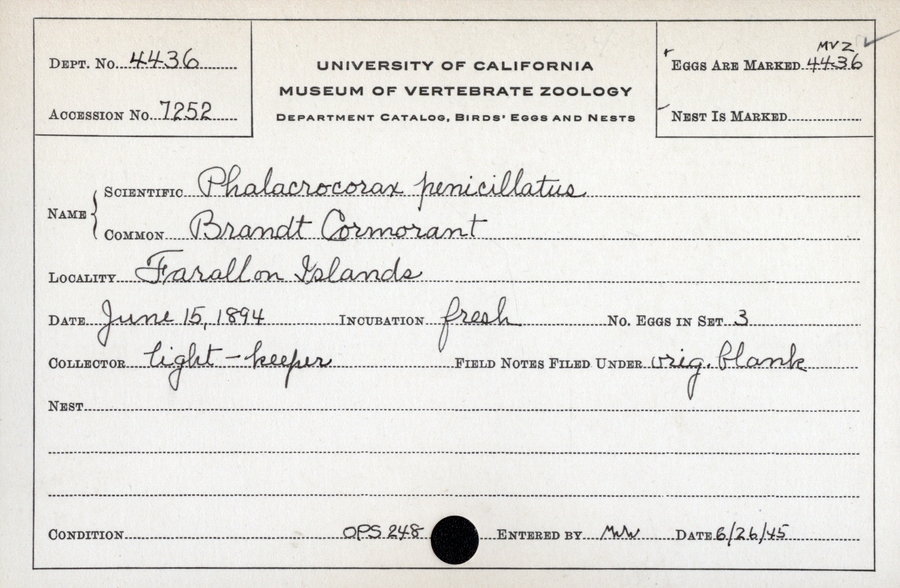 DEPT. No. 4436
ACCESSION No. 7252
UNIVERSITY OF CALIFORNIA
MUSEUM OF VERTEBRATE ZOOLOGY
DEPARTMENT CATALOG, BIRDS' EGGS AND NESTS
MVZ
EGGS ARE MARKED 4436
NEST IS MARKED
NAME
SCIENTIFIC Phalacrocorax penicillatus
COMMON Brandt Cormorant
LOCALITY Farallon Islands
DATE June 15, 1894 INCUBATION fresh No. EGGS IN SET 3
COLLECTOR light-keeper FIELD NOTES FILED UNDER orig. blank
NEST
CONDITION OPS 248 ENTERED BY DATE 6/26/45